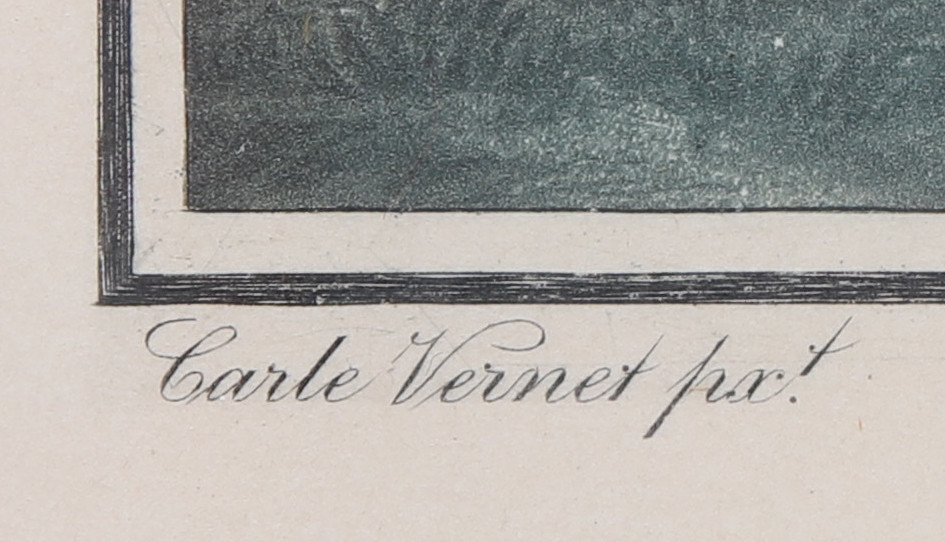 Carle Vernet px.t